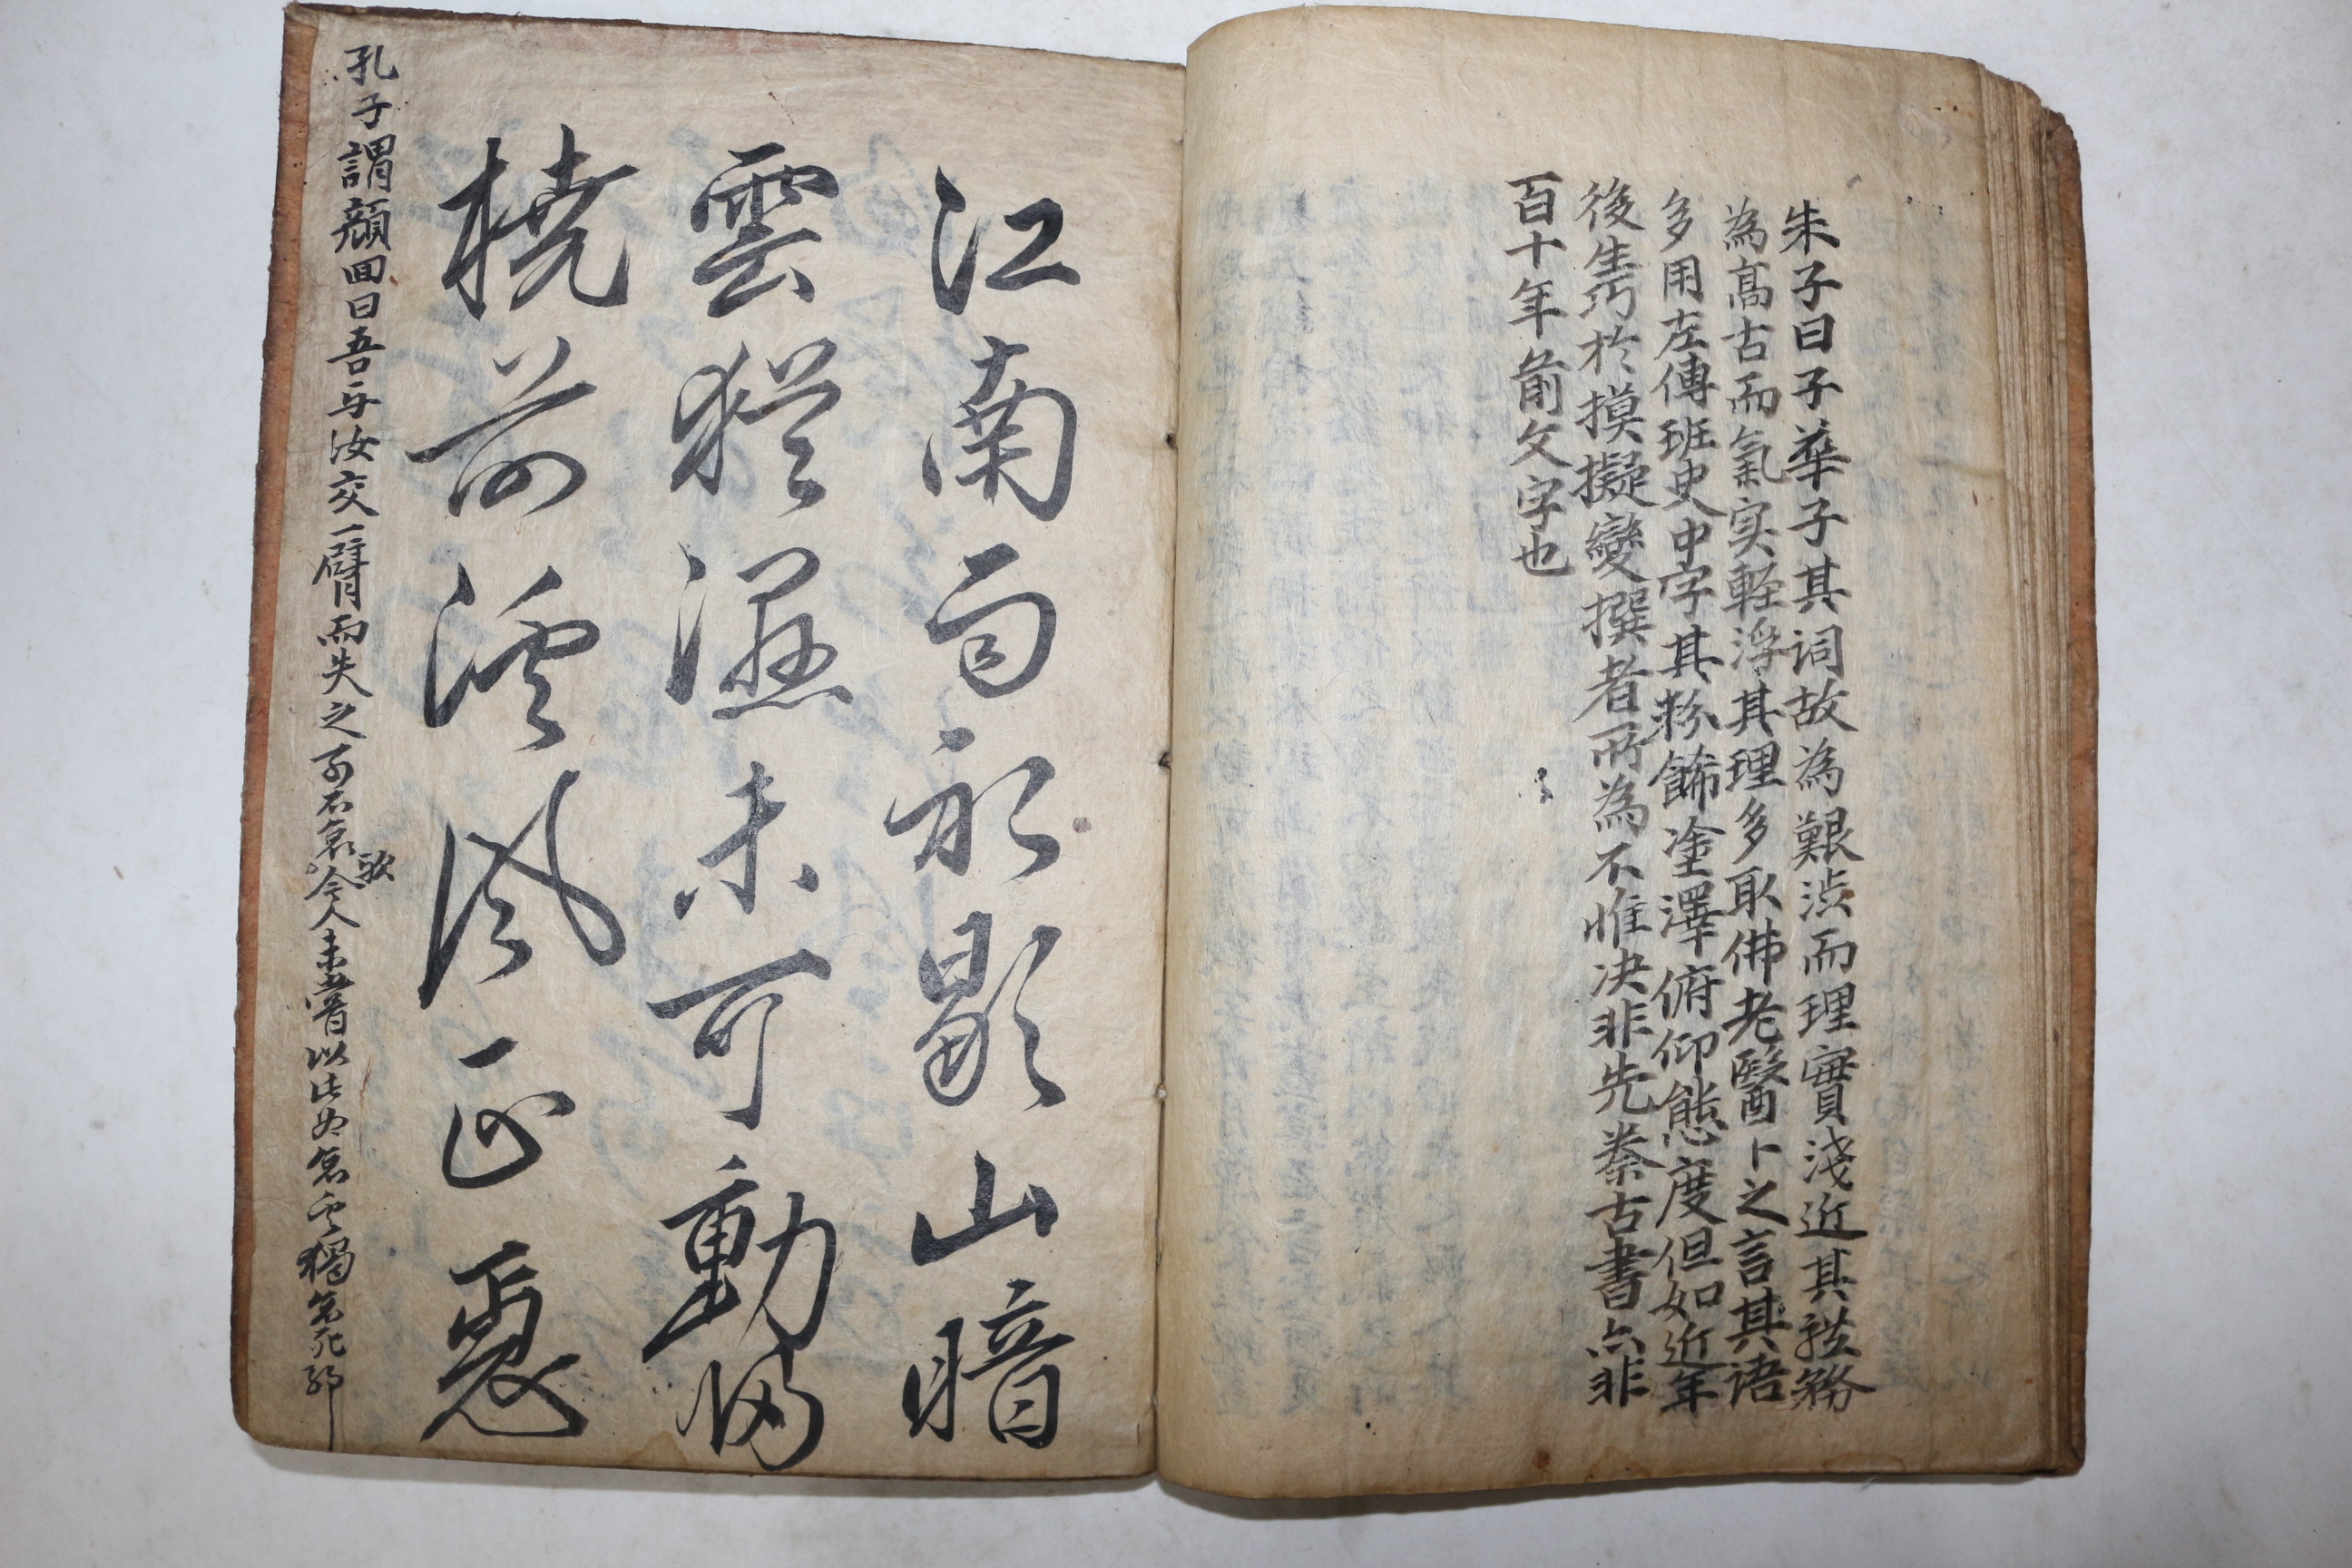 朱子曰子華子其詞故為艱渋而理實淺近其体務
為髙古而氣实軽浮其理多取佛老醫卜之言其語
多用左傳班史中字其粉餙塗澤俯仰態度但如近年
後生巧於摸擬變撰者所為不惟决非先秦古書亦非
百十年前文字也
江南雨初歇山暗
雲猶濕未可動歸
橈前溪風正急
孔子謂顏回曰吾与汝交一臂而失之可不哀歟今人未嘗以此為哀而獨哀死耶